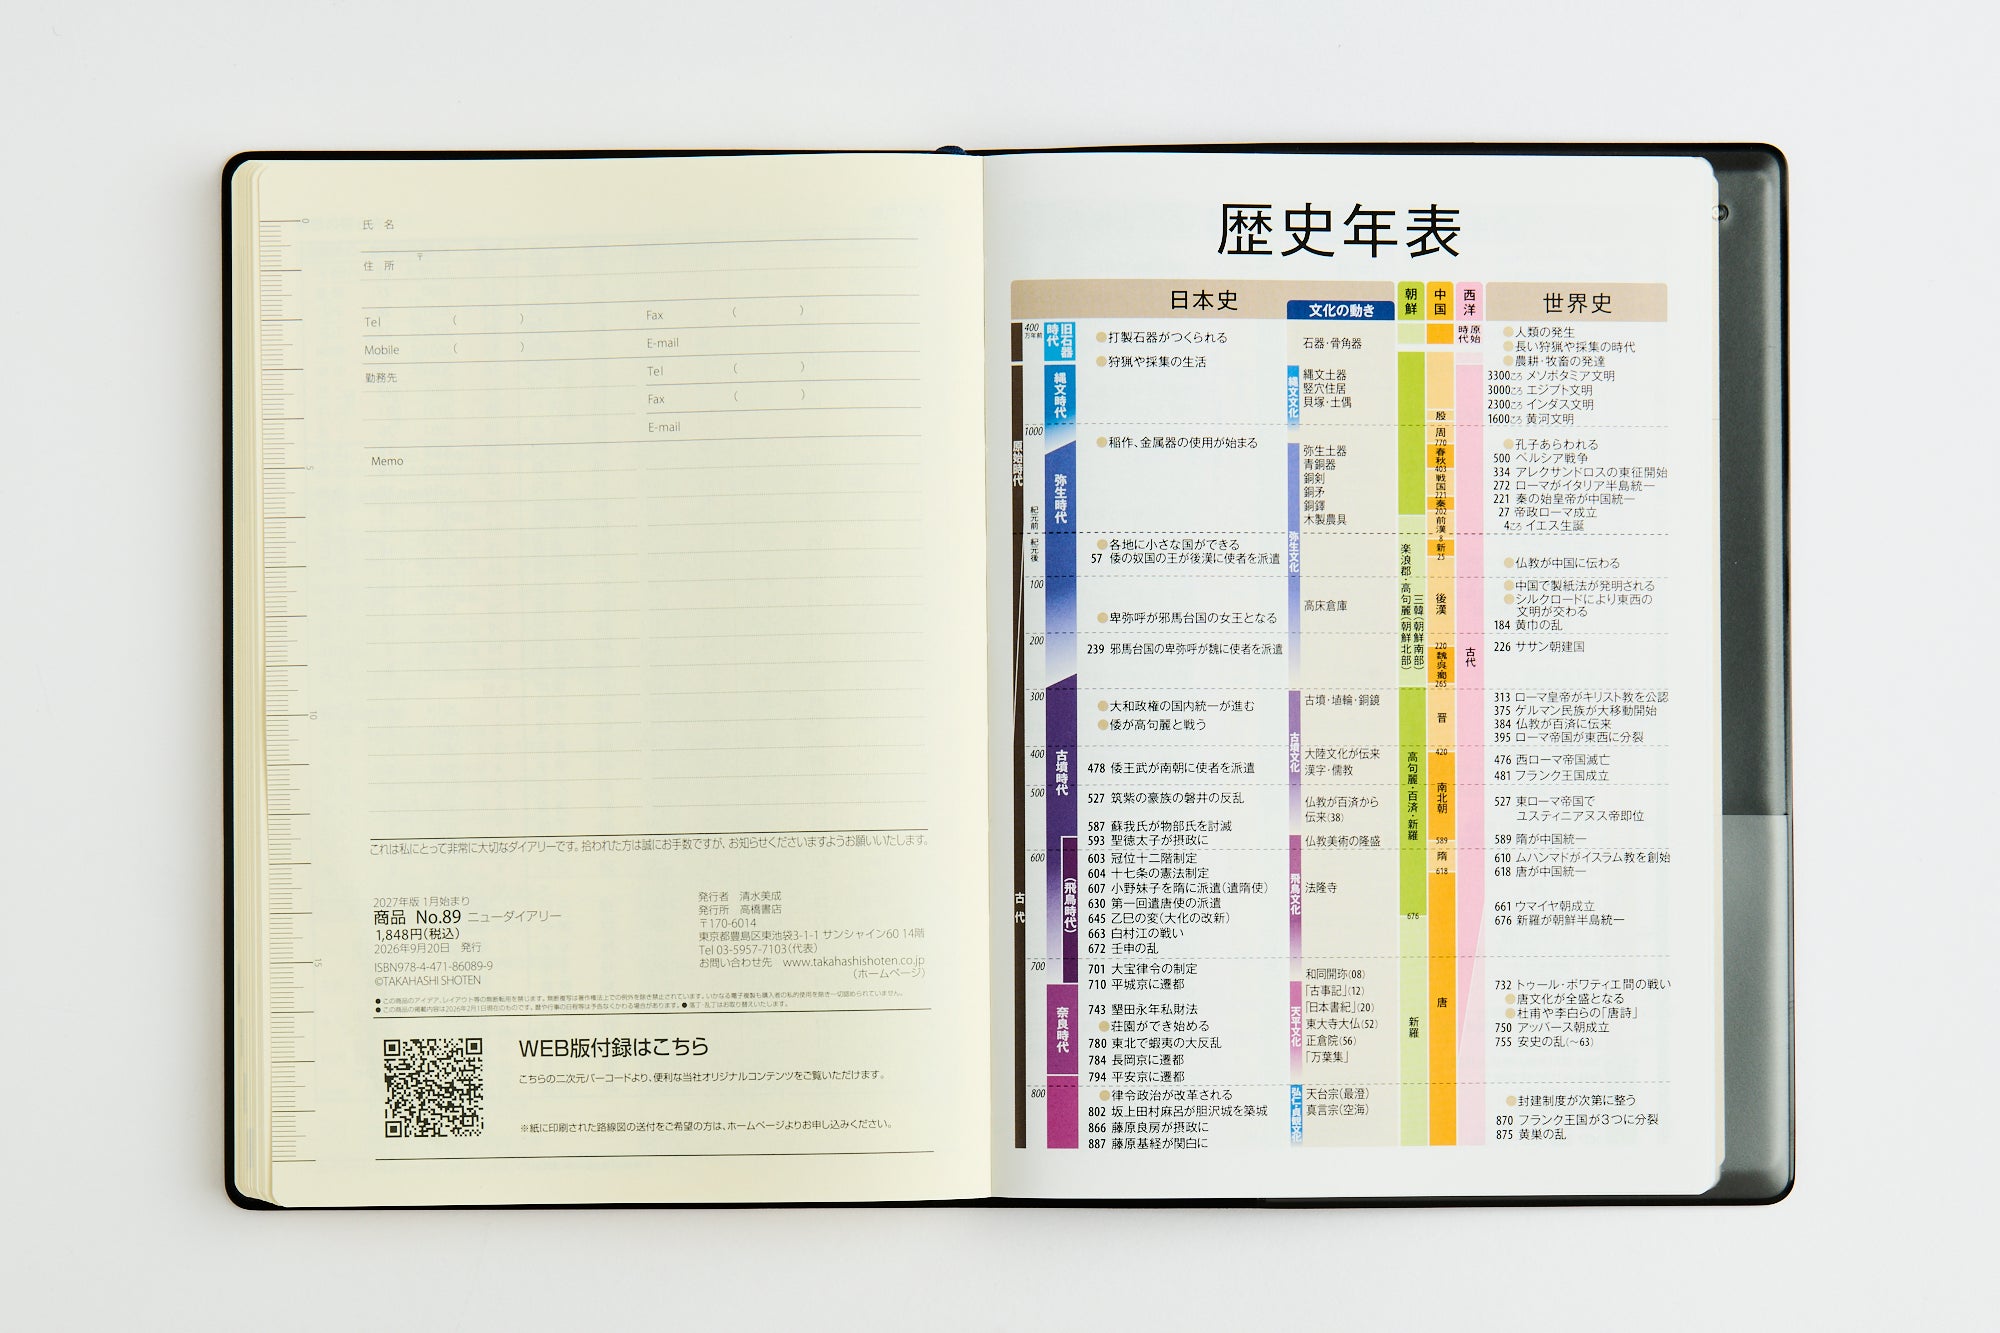 氏 名
住 所 〒
Tel ( ) Fax ( )
Mobile ( ) E-mail
勤務先 Tel ( )
Fax ( )
E-mail
Memo
0
5
10
15
これは私にとって非常に大切なダイアリーです。拾われた方は誠にお手数ですが、お知らせくださいますようお願いいたします。
2027年版 1月始まり
商品 No.89 ニューダイアリー
1,848円(税込)
2026年9月20日 発行
ISBN978-4-471-86089-9
©TAKAHASHI SHOTEN
発行者 清水美成
発行所 高橋書店
〒170-6014
東京都豊島区東池袋3-1-1 サンシャイン60 14階
Tel 03-5957-7103(代表)
お問い合わせ先 www.takahashishoten.co.jp
(ホームページ)
●この商品のアイデア、レイアウト等の無断転用を禁じます。無断複写は著作権法上での例外を除き禁止されています。いかなる電子複製も購入者の私的使用を除き一切認められていません。
●この商品の掲載内容は2026年2月1日現在のものです。暦や行事の日程等は予告なくかわる場合があります。●落丁・乱丁はお取り替えいたします。
WEB版付録はこちら
こちらの二次元バーコードより、便利な当社オリジナルコンテンツをご覧いただけます。
※紙に印刷された路線図の送付をご希望の方は、ホームページよりお申し込みください。
歴史年表
日本史
文化の動き
朝鮮
中国
西洋
世界史
400万年前
1000
紀元前
紀元後
100
200
300
400
500
600
700
800
原始時代
古代
旧石器時代
縄文時代
弥生時代
古墳時代
(飛鳥時代)
奈良時代
●打製石器がつくられる
●狩猟や採集の生活
●稲作、金属器の使用が始まる
●各地に小さな国ができる
57 倭の奴国の王が後漢に使者を派遣
●卑弥呼が邪馬台国の女王となる
239 邪馬台国の卑弥呼が魏に使者を派遣
●大和政権の国内統一が進む
●倭が高句麗と戦う
478 倭王武が南朝に使者を派遣
527 筑紫の豪族の磐井の反乱
587 蘇我氏が物部氏を討滅
593 聖徳太子が摂政に
603 冠位十二階制定
604 十七条の憲法制定
607 小野妹子を隋に派遣(遣隋使)
630 第一回遣唐使の派遣
645 乙巳の変(大化の改新)
663 白村江の戦い
672 壬申の乱
701 大宝律令の制定
710 平城京に遷都
743 墾田永年私財法
●荘園ができ始める
780 東北で蝦夷の大反乱
784 長岡京に遷都
794 平安京に遷都
●律令政治が改革される
802 坂上田村麻呂が胆沢城を築城
866 藤原良房が摂政に
887 藤原基経が関白に
縄文文化
弥生文化
古墳文化
飛鳥文化
天平文化
弘仁・貞観文化
石器・骨角器
縄文土器
竪穴住居
貝塚・土偶
弥生土器
青銅器
銅剣
銅矛
銅鐸
木製農具
高床倉庫
古墳・埴輪・銅鏡
大陸文化が伝来
漢字・儒教
仏教が百済から
伝来(38)
仏教美術の隆盛
法隆寺
和同開珎(08)
「古事記」(12)
「日本書紀」(20)
東大寺大仏(52)
正倉院(56)
「万葉集」
天台宗(最澄)
真言宗(空海)
楽浪郡・高句麗(朝鮮北部)
三韓(朝鮮南部)
高句麗・百済・新羅
676
新羅
殷
周
770
春秋
403
戦国
221
秦
202
前漢
8
新
25
後漢
220
魏呉蜀
265
晋
420
南北朝
589
隋
618
唐
原始時代
古代
●人類の発生
●長い狩猟や採集の時代
●農耕・牧畜の発達
3300ころ メソポタミア文明
3000ころ エジプト文明
2300ころ インダス文明
1600ころ 黄河文明
●孔子あらわれる
500 ペルシア戦争
334 アレクサンドロスの東征開始
272 ローマがイタリア半島統一
221 秦の始皇帝が中国統一
27 帝政ローマ成立
4ころ イエス生誕
●仏教が中国に伝わる
●中国で製紙法が発明される
●シルクロードにより東西の
文明が交わる
184 黄巾の乱
226 ササン朝建国
313 ローマ皇帝がキリスト教を公認
375 ゲルマン民族が大移動開始
384 仏教が百済に伝来
395 ローマ帝国が東西に分裂
476 西ローマ帝国滅亡
481 フランク王国成立
527 東ローマ帝国で
ユスティニアヌス帝即位
589 隋が中国統一
610 ムハンマドがイスラム教を創始
618 唐が中国統一
661 ウマイヤ朝成立
676 新羅が朝鮮半島統一
732 トゥール・ポワティエ間の戦い
●唐文化が全盛となる
●杜甫や李白らの「唐詩」
750 アッバース朝成立
755 安史の乱(〜63)
●封建制度が次第に整う
870 フランク王国が3つに分裂
875 黄巣の乱